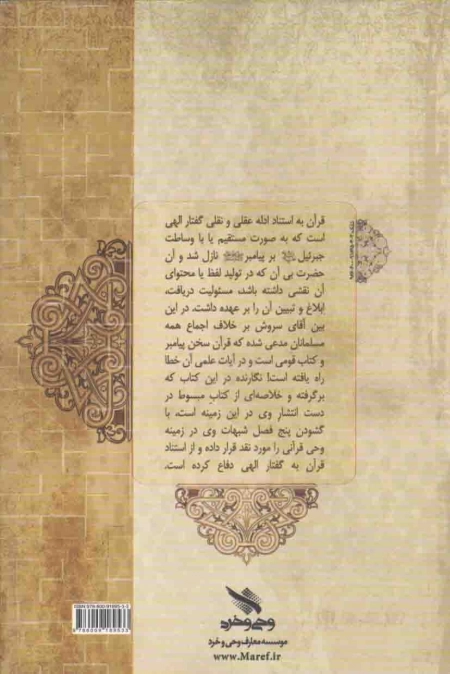 قرآن به استناد ادله عقلی و نقلی گفتار الهی
است که به صورت مستقیم یا با وساطت
جبرئیل بر پیامبر نازل شد و آن
حضرت بی آن که در تولید لفظ یا محتوای
آن نقشی داشته باشد، مسئولیت دریافت،
ابلاغ و تبیین آن را بر عهده داشت. در این
بین آقای سروش بر خلاف اجماع همه
مسلمانان مدعی شده که قرآن سخن پیامبر
و کتاب قومی است و در آیات علمی آن خطا
راه یافته است! نگارنده در این کتاب که
برگرفته و خلاصه‌ای از کتاب مبسوط در
دست انتشار وی در این زمینه است، با
گشودن پنج فصل شبهات وی در زمینه
وحی قرآنی را مورد نقد قرار داده و از استناد
قرآن به گفتار الهی دفاع کرده است.
وحی و خرد
موسسه معارف وحی و خرد
www.Maref.ir